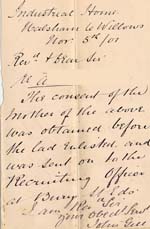 Industrial Home
Walsham le Willows
Nov 5th /01
Revd & Dear Sir
The consent of the
Mother of the above
was obtained before
the lad Enlisted, and
was sent on to the
Recruiting Officer
at Bury St Eds
I am Rev Sir
your obedt
John Gill